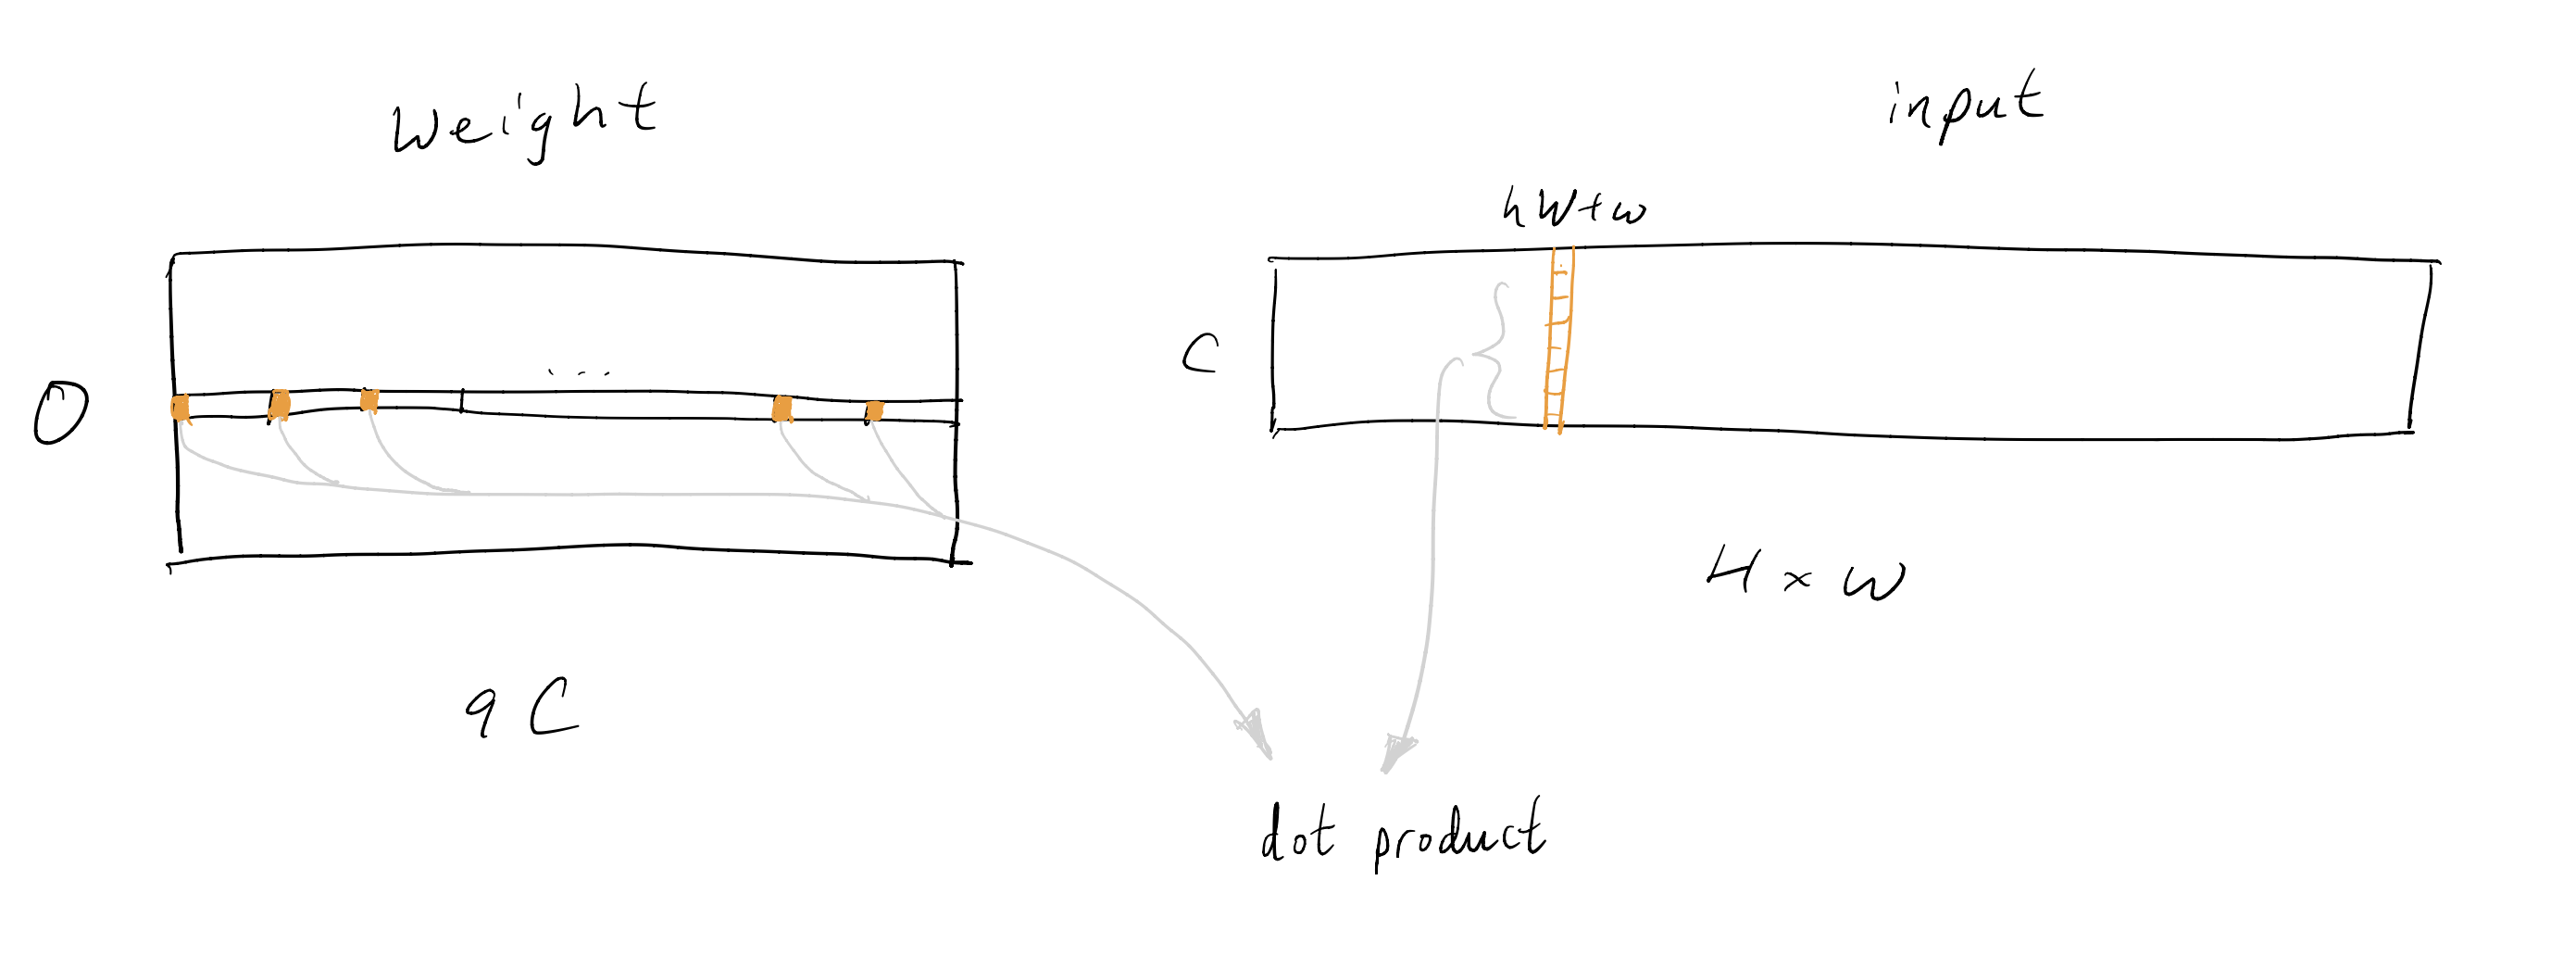 Weight
input
hW+w
...
O
C
H × W
9 C
dot product